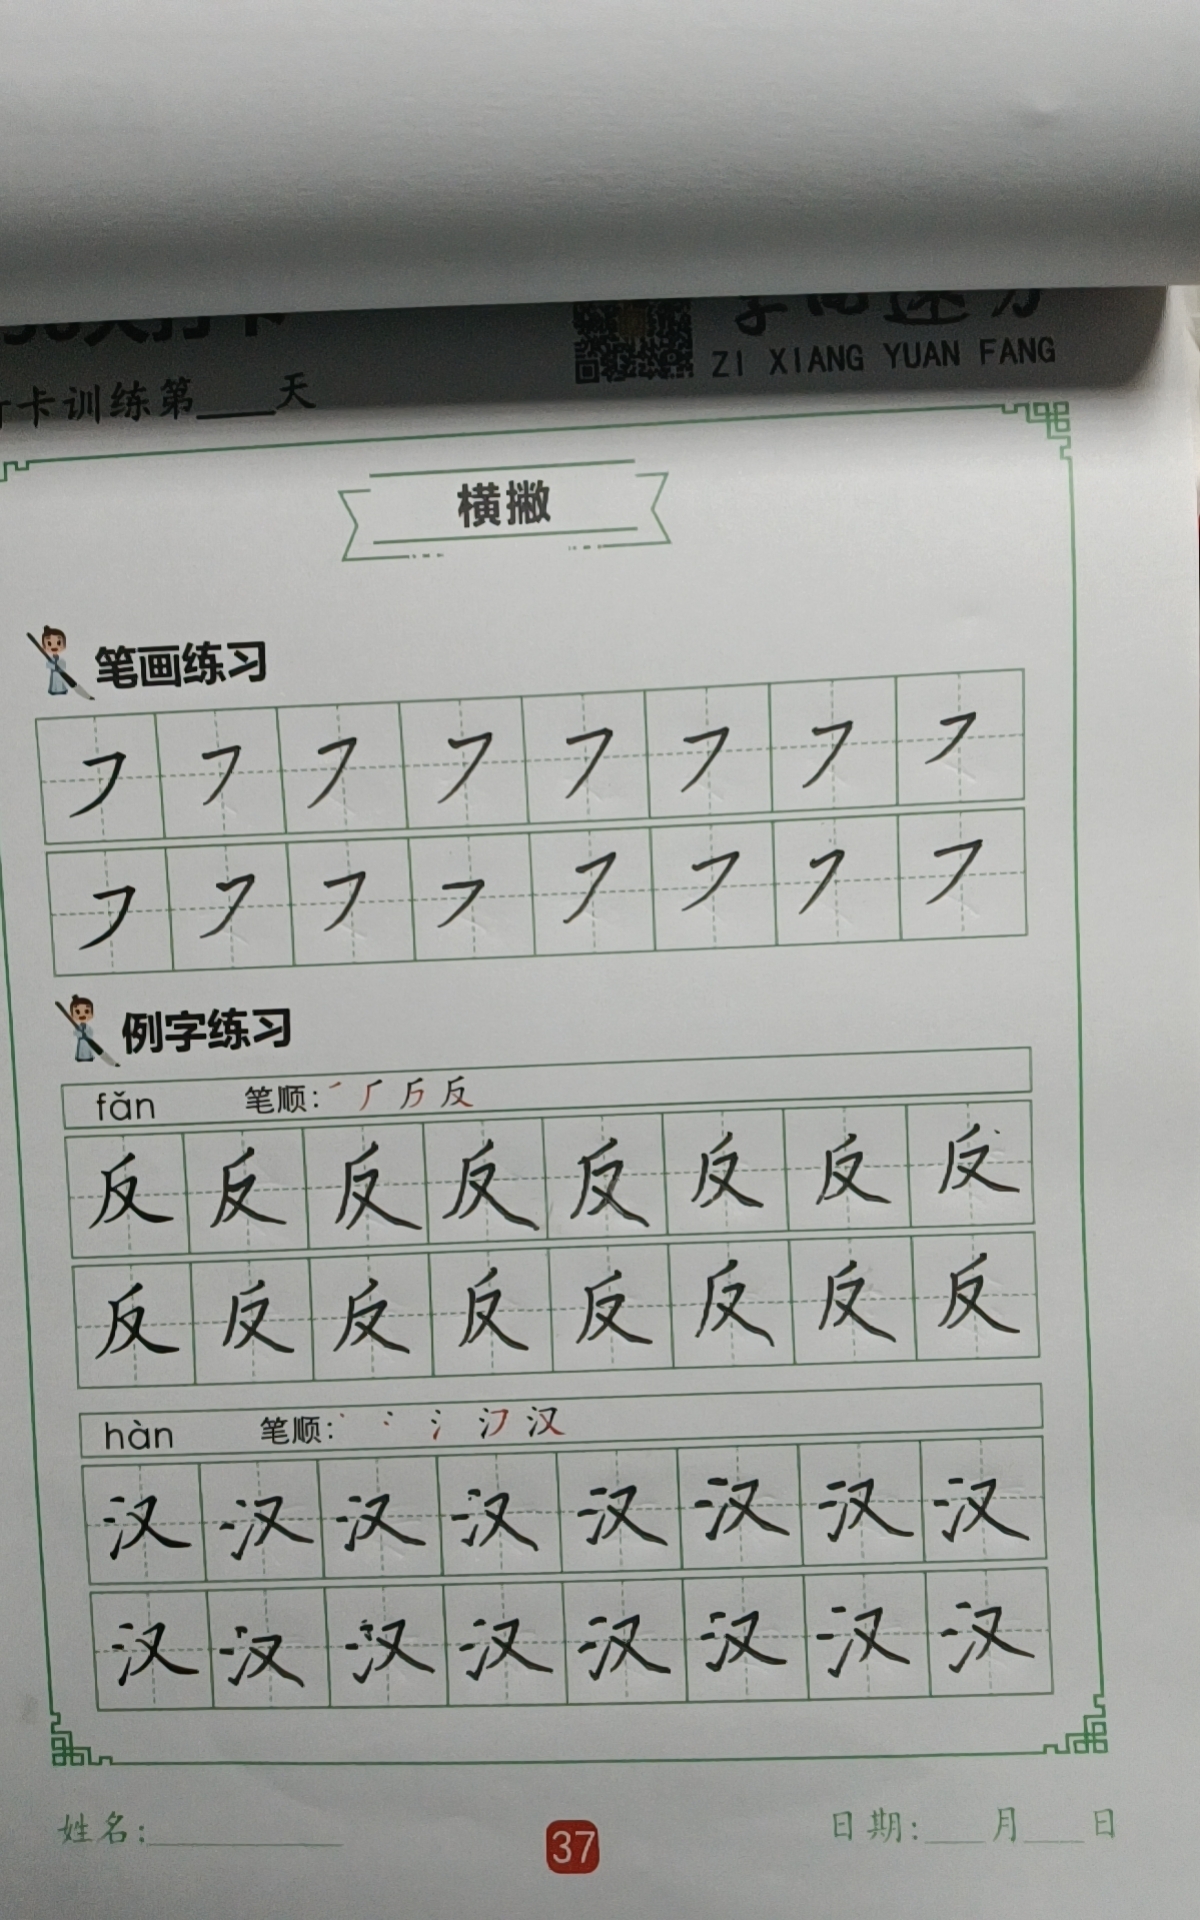 卡训练第____天
ZI XIANG YUAN FANG
横撇
笔画练习
㇇ ㇇ ㇇ ㇇ ㇇ ㇇ ㇇ ㇇
㇇ ㇇ ㇇ ㇇ ㇇ ㇇ ㇇ ㇇
例字练习
fǎn 笔顺: 反
反 反 反 反 反 反 反 反
反 反 反 反 反 反 反 反
hàn 笔顺: 汉
汉 汉 汉 汉 汉 汉 汉 汉
汉 汉 汉 汉 汉 汉 汉 汉
姓名:__________ 37 日期:___月___日